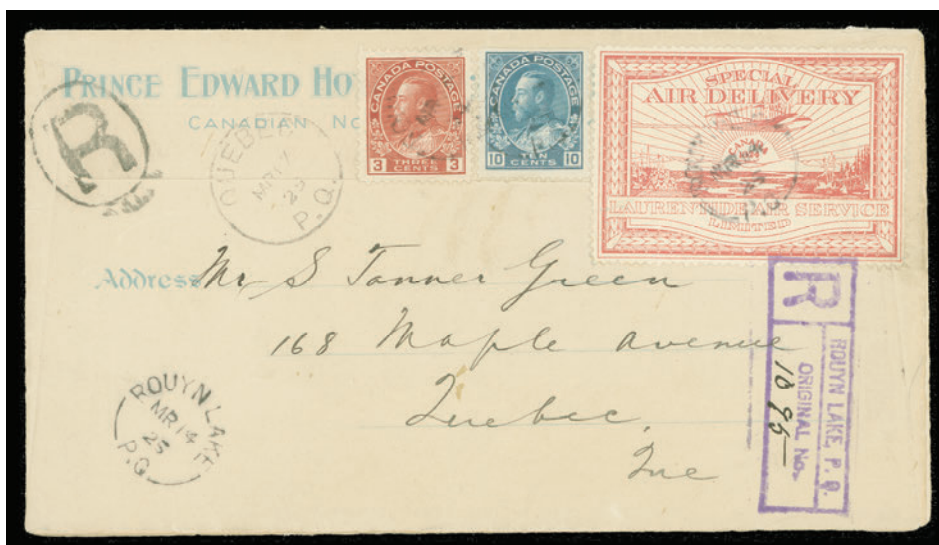 PRINCE EDWARD HO
CANADIAN NO
R
QUEBEC
MR
25
P.Q.
CANADA POSTAGE
3 THREE CENTS 3
CANADA POSTAGE
10 TEN CENTS 10
SPECIAL
AIR DELIVERY
CANADA
LAURENTIDE AIR SERVICE
LIMITED
Address Mr S Tanner Green
168 Maple Avenue
Quebec,
Que
ROUYN LAKE
MR 14
25
P.Q.
R
ROUYN LAKE, P. Q.
ORIGINAL No.
1095